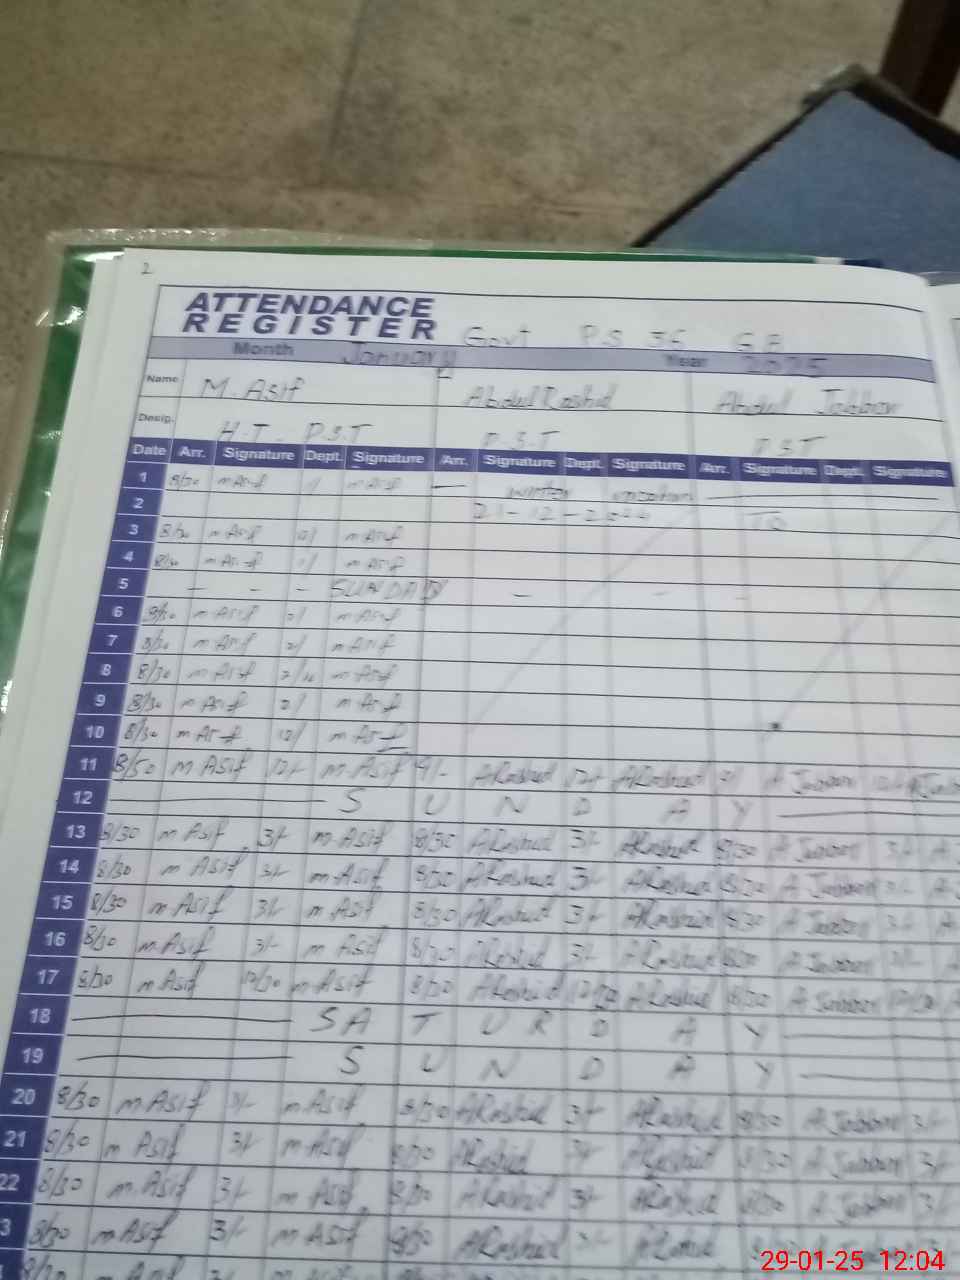 2
ATTENDANCE
REGISTER Govt P.S 36 G.B
Month January Year 2025
Name M. Asif Abdul Rashid Abdul Jabbar
Desig. H.T. P.S.T P.S.T P.S.T
Date Arr. Signature Dept. Signature Arr. Signature Dept. Signature Arr. Signature Dept. Signature
1 8/30 m Asif 1/ m Asif — winter vacation
2 21-12-2024 TO
3 8/30 m Asif m Asif
4 8/30 m Asif 1/ m Asif
5 - - - SUNDAY - - -
6 8/30 m Asif m Asif
7 8/30 m Asif m Asif
8 8/30 m Asif m Asif
9 8/30 m Asif m Asif
10 8/30 m Asif 12/ m Asif
11 8/50 m Asif 12/- m. Asif 9/- ARashid 12/- ARashid 9/ A Jabbar
12 S U N D A Y
13 8/30 m Asif 3/- m Asif 8/30 ARashid 3/- ARashid 8/30 A Jabbar 3/- A
14 8/30 m Asif 3/- m Asif 8/30 ARashid 3/- ARashid 8/30 A Jabbar 3/- A
15 8/30 m Asif 3/- m Asif 8/30 ARashid 3/- ARashid 8/30 A Jabbar 3/- A
16 8/30 m.Asif 3/- m Asif 8/30 ARashid 3/- ARashid 8/30 A Jabbar 3/- A
17 8/30 m Asif 12/30 m Asif 8/30 ARashid 12/30 ARashid 8/30 A Jabbar 12/30 A
18 S A T U R D A Y
19 S U N D A Y
20 8/30 m.Asif 3/- m.Asif 8/30 ARashid 3/- ARashid 8/30 A Jabbar 3/-
21 8/30 m Asif 3/- m.Asif 8/30 ARashid 3/- ARashid 8/30 A Jabbar 3/-
22 8/30 m.Asif 3/- m Asif 8/30 ARashid 3/- ARashid 8/30 A Jabbar 3/-
3 8/30 m Asif 3/- m Asif 8/30 ARashid 3/- 8/30 A Jabbar 3/-
8/30
29-01-25 12:04